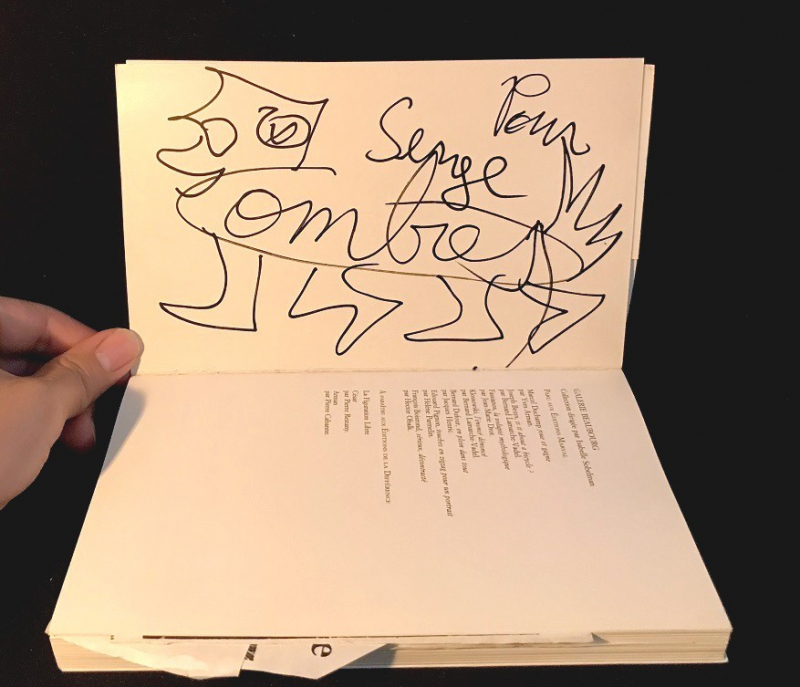 Pour
Serge
ombre
GALERIE BEAUBOURG
Collection dirigée par Isabelle Sobelman
PARU AUX ÉDITIONS MARVAL
Marcel Duchamp joue et gagne
par Yves Arman.
Joseph Beuys, is it about a bicycle ?
par Bernard Lamarche-Vadel
Fassianos, la volupté mythologique
par Jean-Marie Drot
Klossowski, l'énoncé dénoncé
par Bernard Lamarche-Vadel
Bernard Dufour, en plein dans tout
par Jacques Henric
Edouard Pignon, touches en zigzag pour un portrait
par Hélène Parmelin
François Boisrond,
par Hector Obalk
À PARAÎTRE AUX ÉDITIONS DE LA DIFFÉRENCE
La Figuration Libre
César
par Pierre Restany.
Arman
par Pierre Cabanne.
e